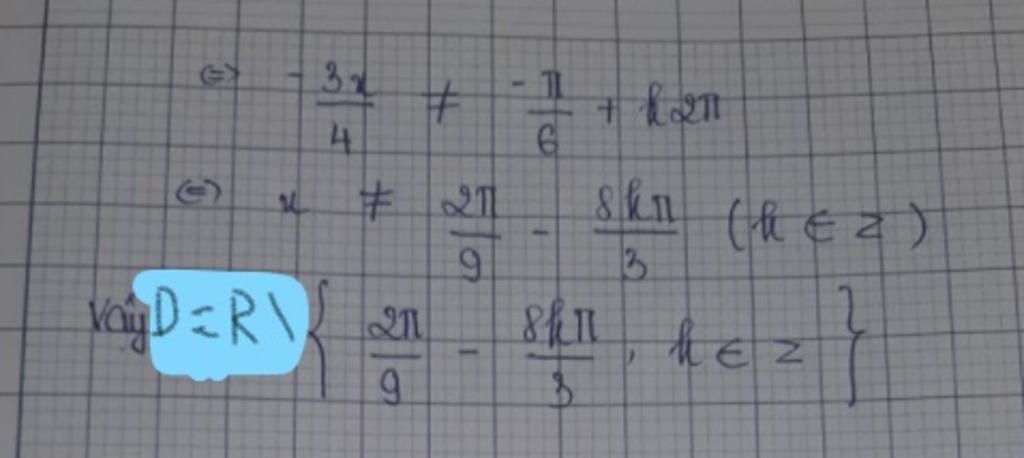 ⇔ - 3x/4 ≠ -π/6 + k2π
⇔ x ≠ 2π/9 - 8kπ/3 (k ∈ Z)
Vậy D = R \ { 2π/9 - 8kπ/3, k ∈ Z }